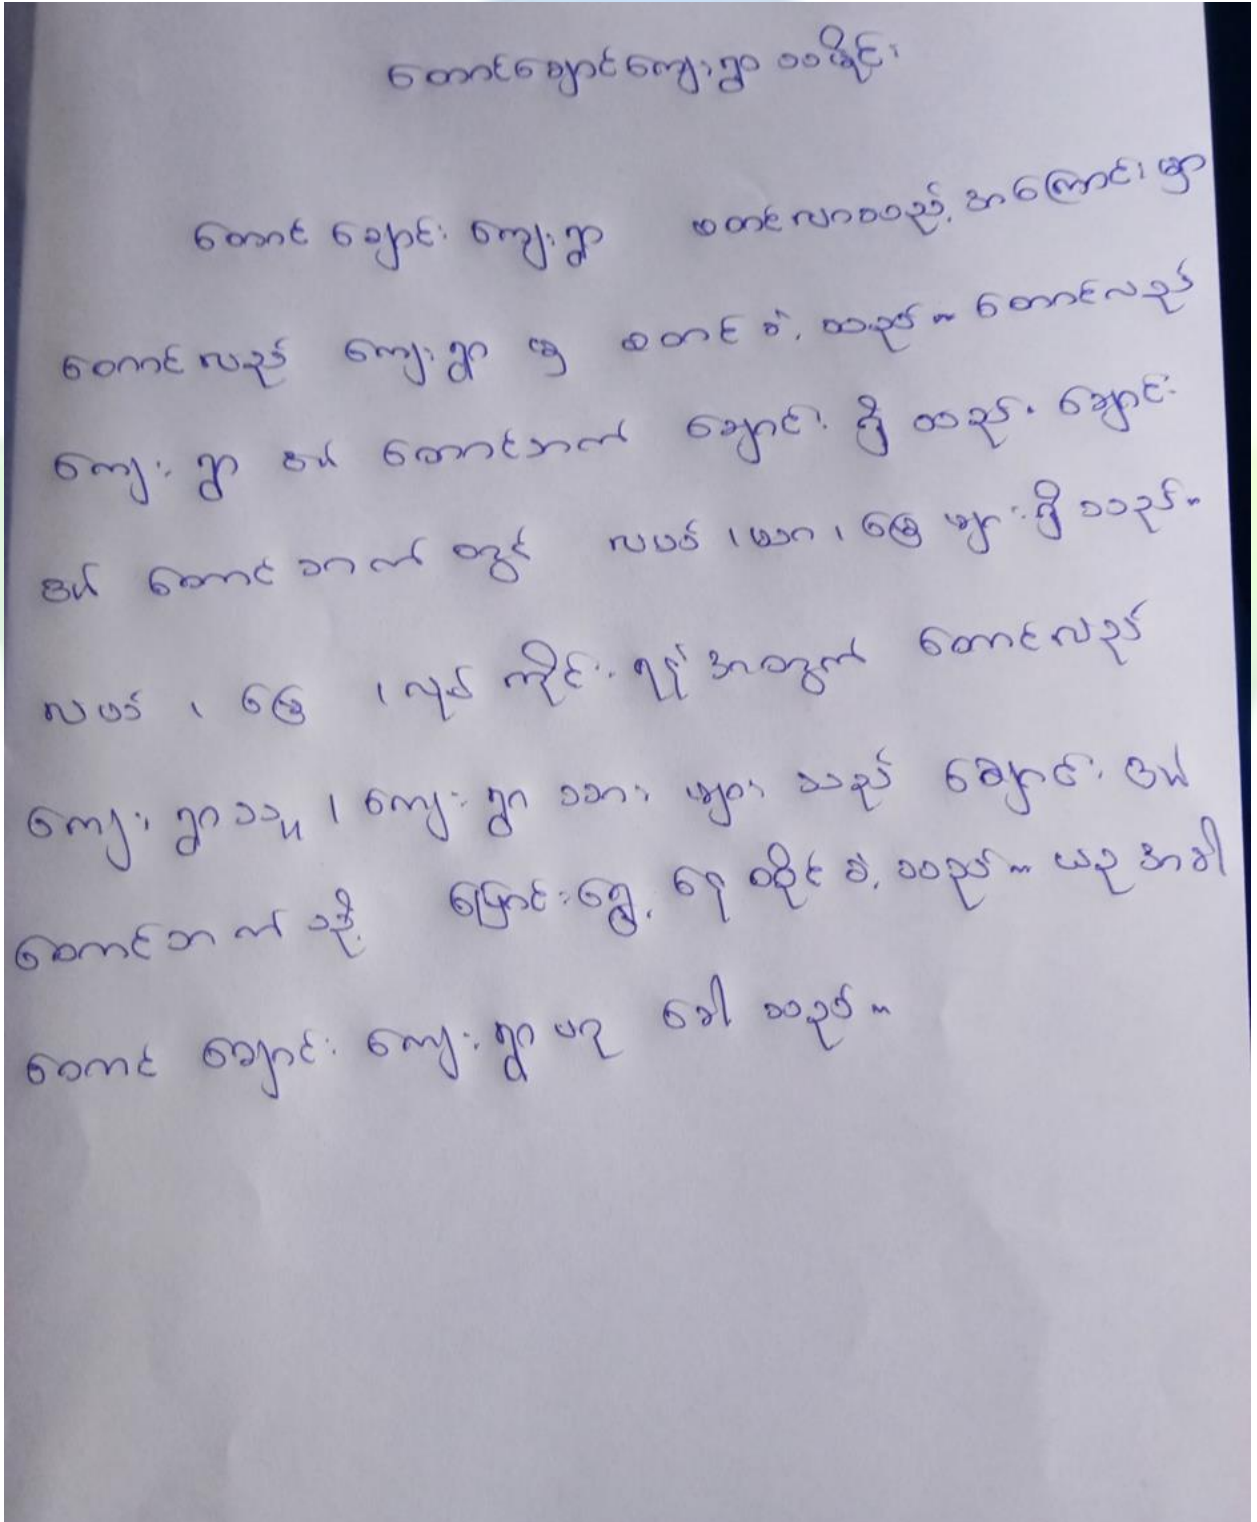 တောင်ချောင်ကျေးရွာ သမိုင်း
တောင် ချောင်း ကျေးရွာ စတင်လာသည့် အကြောင်းမှာ
တောင်လည် ကျေးရွာ မှ စတင် ခဲ့ သည်။ တောင်လည်
ကျေးရွာ ၏ တောင်ဘက် ချောင်း ရှိ သည်။ ချောင်း
၏ တောင်ဘက် တွင် လယ် ၊ယာ ၊ မြေ များ ရှိ သည်။
လယ် ၊ မြေ ၊လုပ် ကိုင်း ရန် အတွက် တောင်လည်
ကျေးရွာသူ ၊ ကျေးရွာ သား များ သည် ချောင်း ၏
တောင်ဘက် သို့ ပြောင်းရွှေ့ နေ ထိုင် ခဲ့ သည်။ ယခု အခါ
တောင် ချောင်း ကျေးရွာ ဟု ခေါ် သည်။